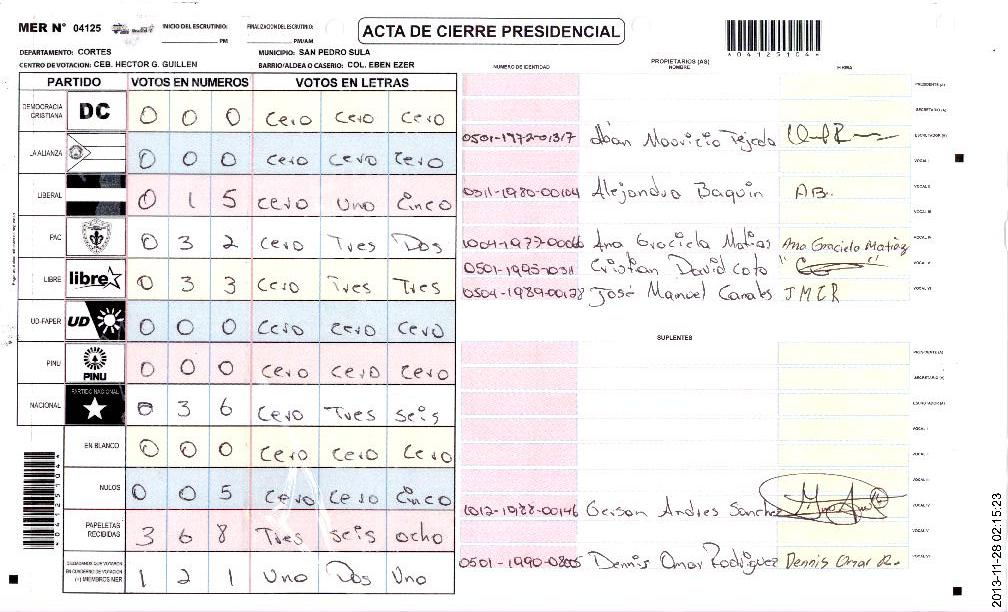 MER N° 04125
INICIO DEL ESCRUTINIO:
PM
FINALIZACION DEL ESCRUTINIO:
PM/AM
ACTA DE CIERRE PRESIDENCIAL
*04125104*
DEPARTAMENTO: CORTES
MUNICIPIO: SAN PEDRO SULA
CENTRO DE VOTACION: CEB. HECTOR G. GUILLEN
BARRIO/ALDEA O CASERIO: COL. EBEN EZER
PARTIDO VOTOS EN NUMEROS VOTOS EN LETRAS
DEMOCRACIA CRISTIANA DC 0 0 0 Cero Cero Cero
LA ALIANZA 0 0 0 Cero Cero Cero
LIBERAL 0 1 5 Cero Uno Cinco
PAC 0 3 2 Cero Tres Dos
LIBRE libre 0 3 3 Cero Tres Tres
UD-FAPER UD 0 0 0 Cero Cero Cero
PINU PINU 0 0 0 Cero Cero Cero
NACIONAL PARTIDO NACIONAL 0 3 6 Cero Tres Seis
EN BLANCO 0 0 0 Cero Cero Cero
NULOS 0 0 5 Cero Cero Cinco
PAPELETAS RECIBIDAS 3 6 8 Tres Seis ocho
CIUDADANOS QUE VOTARON EN CUADERNO DE VOTACION (+) MIEMBROS MER 1 2 1 Uno Dos Uno
NUMERO DE IDENTIDAD
PROPIETARIOS (AS)
NOMBRE
FIRMA
PRESIDENTE (A)
SECRETARIO (A)
0501-1972-01317 Mauricio Tejeda ESCRUTADOR (A)
VOCAL I
Alejandro Baquin AB. VOCAL II
VOCAL III
Ana Graciela Matias Ana Graciela Matiaz VOCAL IV
Cristian David Coto VOCAL V
José Manuel Canales JMCR VOCAL VI
SUPLENTES
PRESIDENTE (A)
SECRETARIO (A)
ESCRUTADOR (A)
VOCAL I
VOCAL II
VOCAL III
1012-1988-00146 Gerson Andres Sanchez VOCAL IV
VOCAL V
Dennis Omar Rodriguez Dennis Omar R. VOCAL VI
*04125104*
2013-11-28 02:15:23